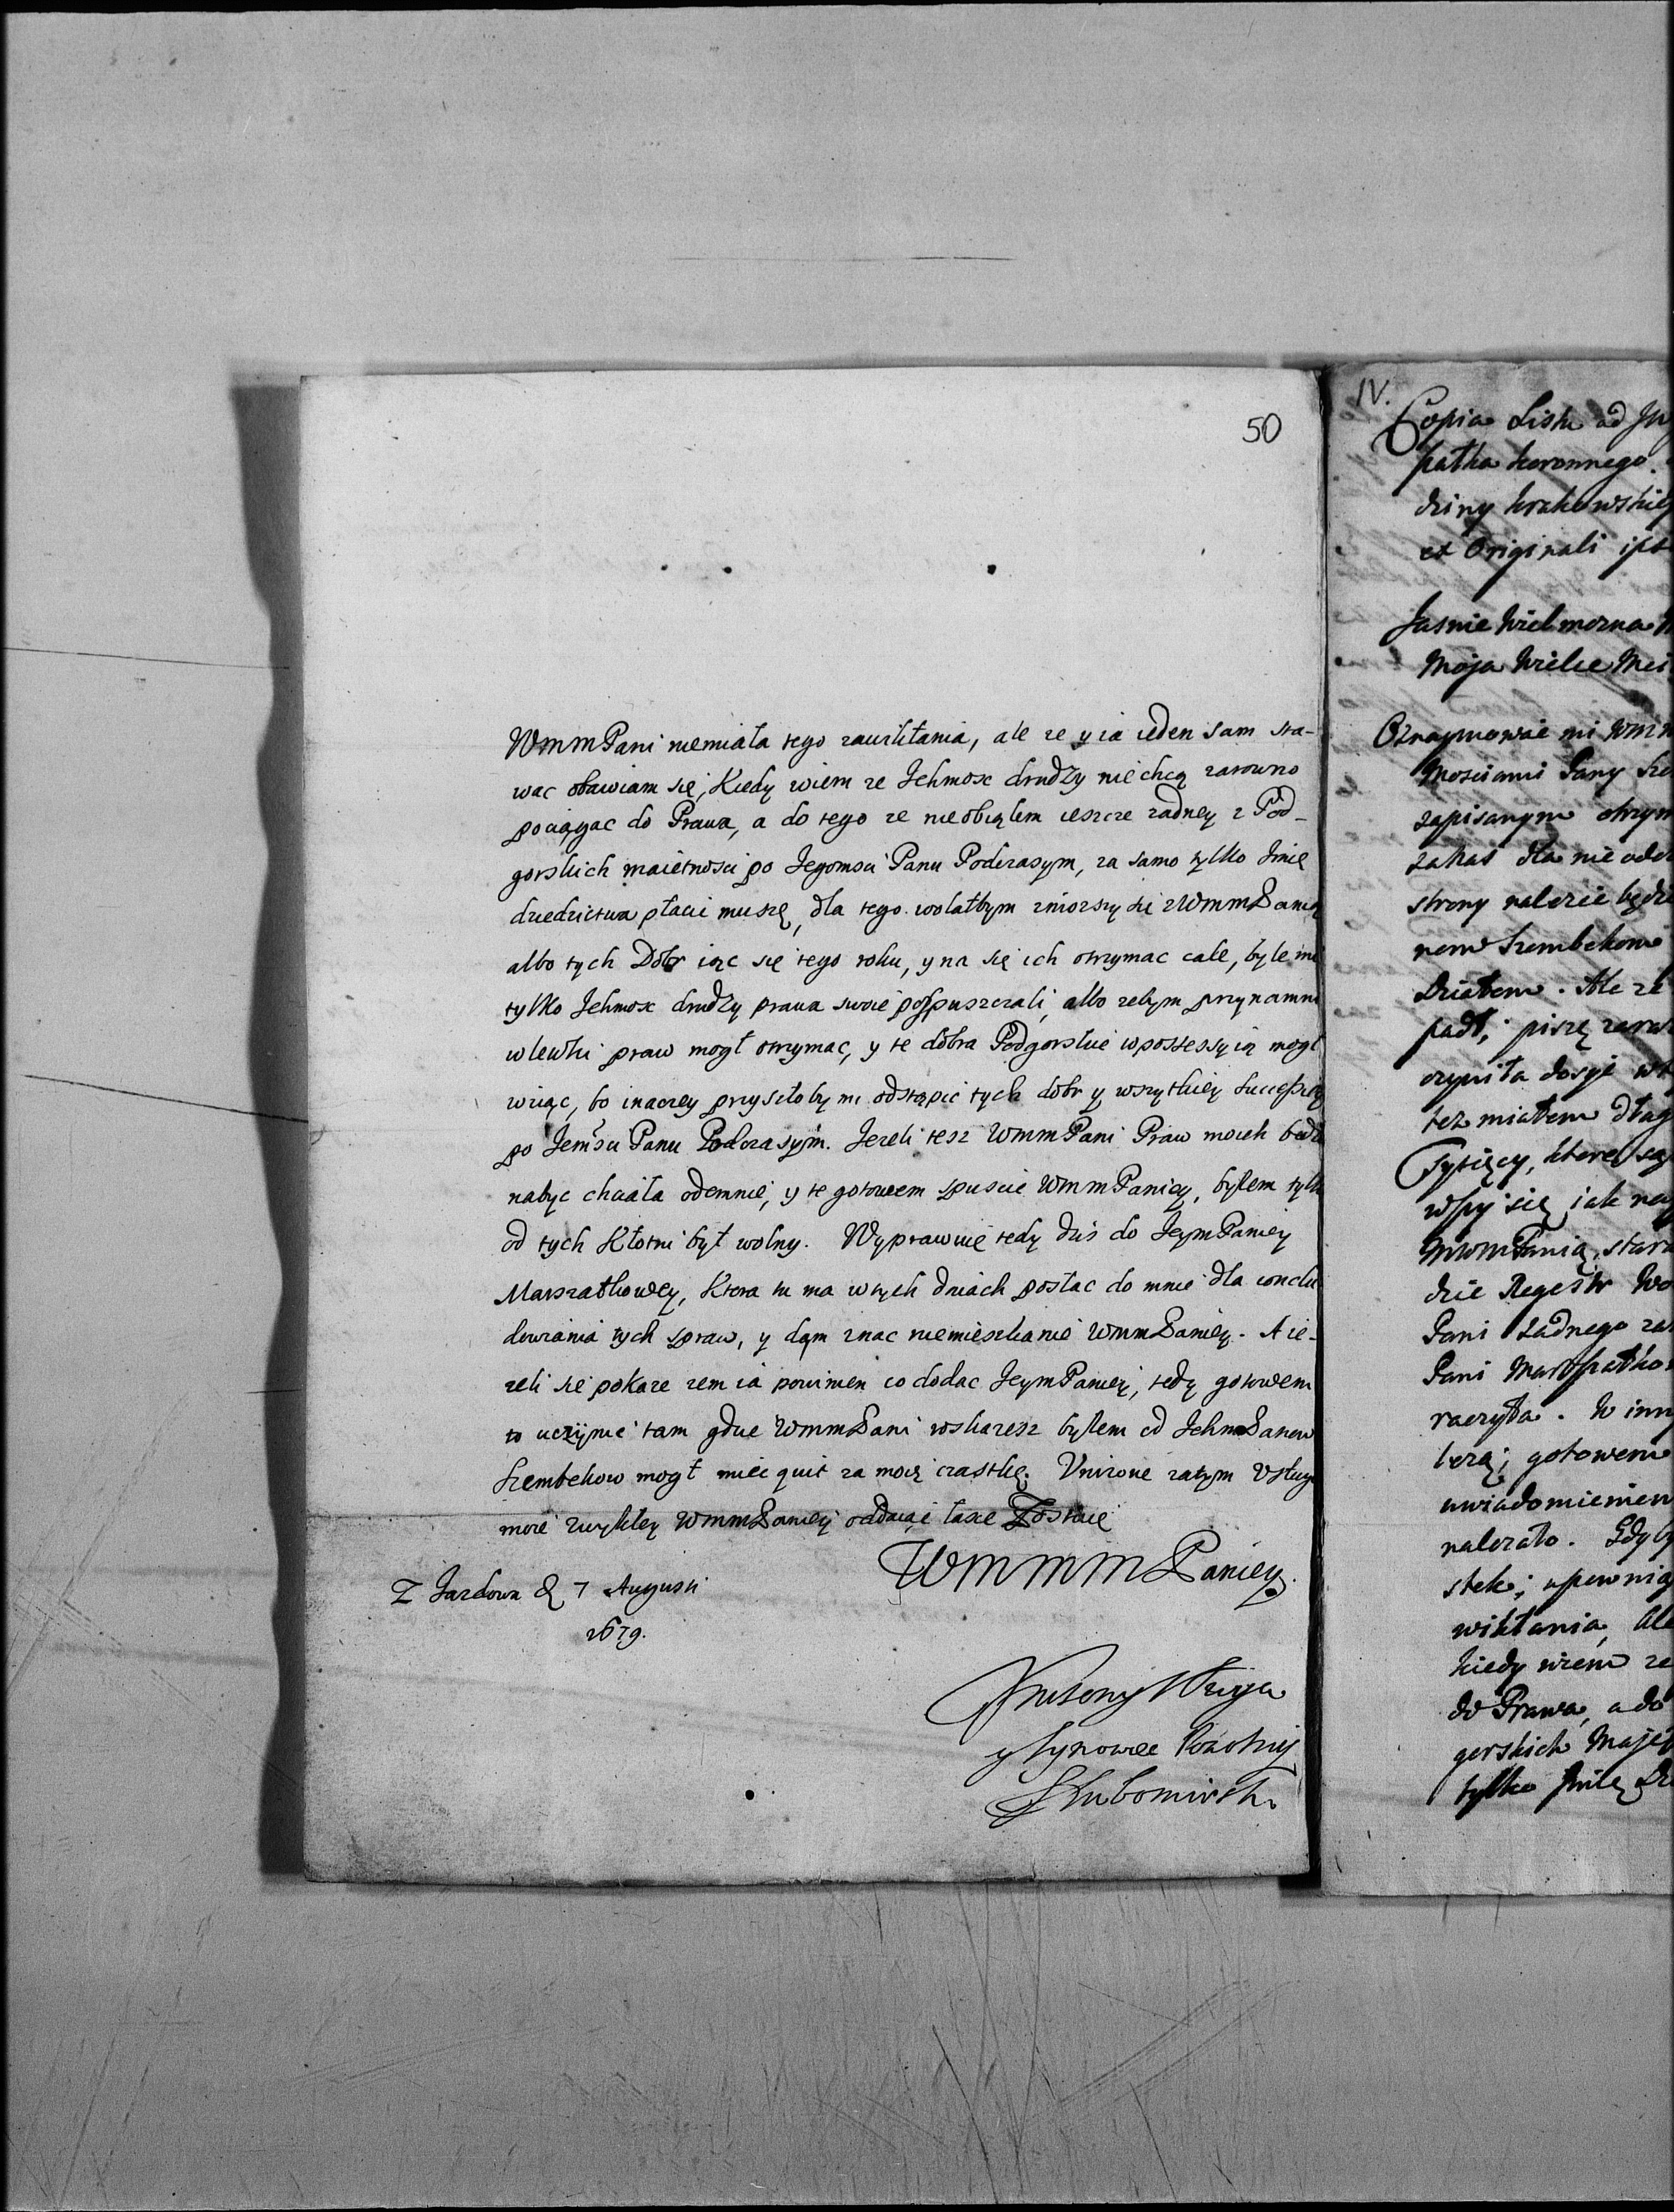 50
WmmPani niemiała tego zawikłania, ale ze y ia ieden sam sta-
wac obawiam się, Kiedy wiem ze Jchmosc drudzy nie chcą zarowno
pociągac do Prawa, a do tego ze nieobiąłem ieszcze zadney z Pod-
gorskich maietnosci po Jegomsci Panu Podczaszym, za samo tylko Jmie
dziedzictwa płacic muszę, dla tego wolałbym zniozszy się z WmmPanią
albo tych Dobr iąc się tego roku, y na się ich otrzymac cale, byle mi
tylko Jchmosc drudzy prawa swoie pospuszczali, albo zebym przynamni
wlewki praw mogł otrzymac, y te dobra Podgorskie w possessyią mogł
wziąc, bo inaczey przyszłoby mi odstąpic tych dobr y wszytkiey Successiey
po Jemsci Panu Podczaszym. Jezeli tesz WmmPani Praw moich będzie
nabyc chciała odemnie, y te gotowem spuscic WmmPaniey, byłem tylko
od tych Kłotni był wolny. Wyprawuię tedy dzis do JeymPaniey
Marszałkowey, Ktora tu ma w tych dniach posłac do mnie dla conclu
dowania tych spraw, y dąm znac niemieszkanie WmmPaniey. A ie-
zeli się pokaze zem ia powinien co dodac JeymPaniey, tedy gotowem
to uczynic tam gdzie WmmPani wskazesz byłem od JchmPanow
Szembekow mogł miec quit za moię cząstkę. Unizone zatym Usługi
moie zwykłey WmmPaniey oddaiąc łasce Zostaię
WmmmPaniey
Z Jazdowa d 7 Augusti
1679.
y synowiec
SLubomirski
IV.
Copia Listu ad
szałka koronnego.
dziny krakowskiey
ex Originali
Jasnie Wielmozna
Moja Wielce
Oznaymowac mi
Mosciami Pany
zapisanym
zakas dla nie
strony nalezec będzie
nem Szembekom
Działem. Ale ze
padł, piszę zaraz
czyniła dosyc
tez miałem
Tysięcy, ktore są
wszy się iak
WmmPanią,
dzie Regestr
Pani zadnego
Pani Marszałko
raczyła. W
berą; gotowem
uwiadomieniem
nalezało. Gdyby
stek; upewnia
wikłania, Ale
kiedy wiem ze
do Prawa, a do
gorskich
tylko Jmie